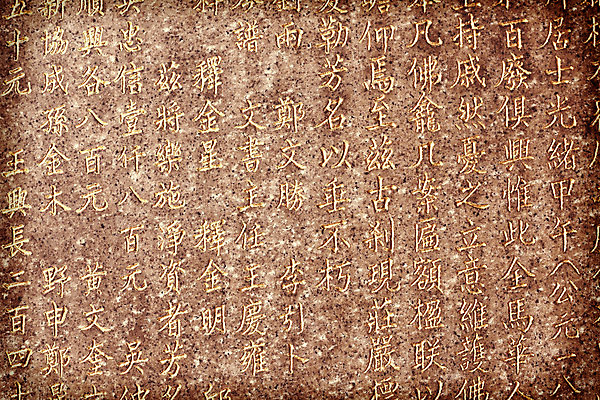 居士光緒甲午(公元一八
百廢俱興惟此金馬華人
持戚然憂之立意維護佛
凡佛龕几案匾額楹聯以
仰焉至茲古刹現莊嚴
勒芳名以垂不朽
雨 鄭文勝 李引卜
譜 文書主任王慶雍
釋金星 釋金明
茲將樂施淨資者芳名
忠信壹仟八百元 吳佛
順興各八百元 黃文奎
新協成孫金木 野申鄭
五十元 王興長二百四十